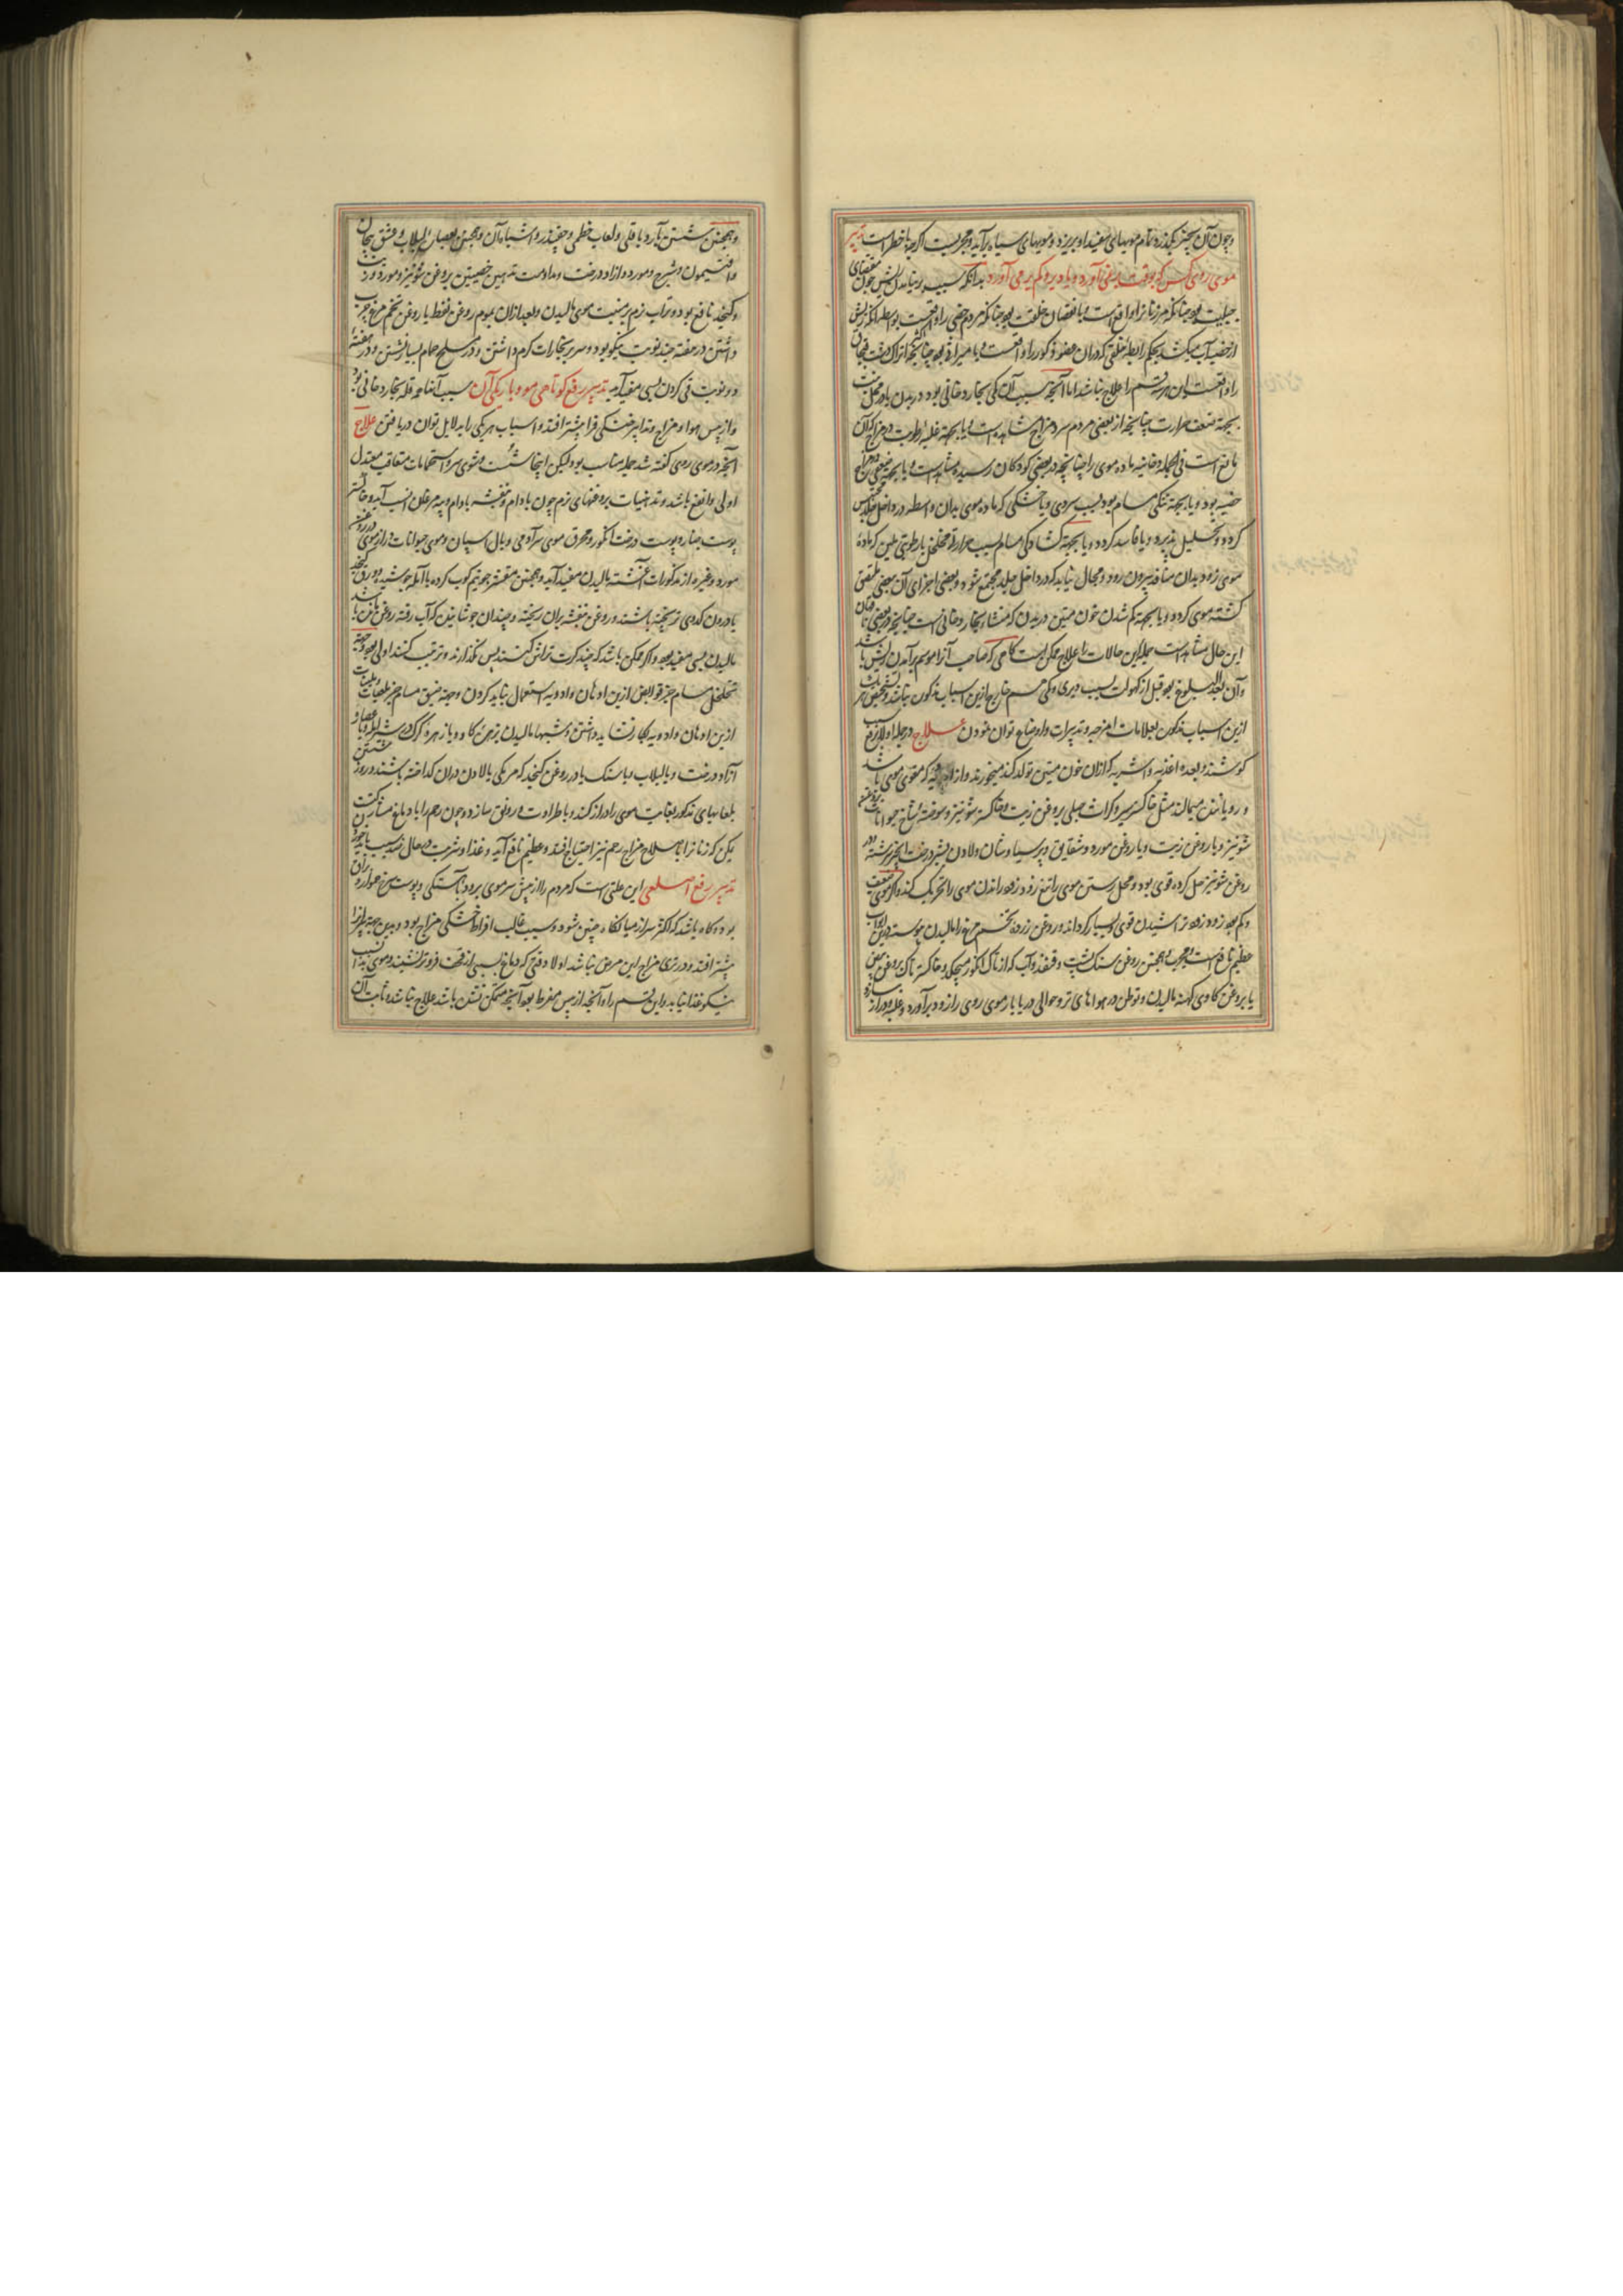 وچون آن بحیز بگذرد تمام مویهای سفید او بریزد و مویهای سیاه برآید و مجربست اگرچه با خطر است تدبیر
موی روی کس که بوقت بیغنی آورد و یا دیر و کم برمی آورد بدانکه سبب برنیامدن ریش چون مقتضای
جبلیت بود چنانکه مر زنانرا واقع است و یا نقصان خلقت بود چنانکه مردم خصی را واقعست بواسطه آنکه ریش
از خصیه آب میکشد بحکم رابطه خلقی که دران عضو ذکور را واقعست و یا میراث بود چنانچه اتراک دشت قبچاق
را واقعست این هر قسم را علاج نباشد اما آنچه سبب آن کمی بخار دخانی بود در بدن یا در محل
بجهة ضعف حرارت چنانچه از بعضی مردم سرد مزاج مشاهده است و یا بجهة غلبه رطوبت در مزاج که آن
مانع است فی الجمله دخانیه ماده موی را چنانچه در بعضی کودکان رسیده مشاهد است و یا بجهة
خصیه بود و یا بجهة تنگی مسام بود بسبب سردی و یا خشکی که ماده موی بدان واسطه در داخل جلد
کرد و تحلیل پذیرد و یا فاسد کردد و یا بجهة کشادگی مسام بسبب حرارت مخلخل یا رطوبتی ملین که ماده
موی زود بدان منافذ بیرون رود و مجال نیابد که در داخل جلد مجتمع شود و بعضی اجزای آن ببعضی ملتصق
کشته موی کردد و یا بجهة کم شدن خون متین در بدن که منشاء بخار دخانی است چنانچه در بعضی
این حال مشاهد است جمله این حالات را علاج ممکن است کاهی که صاحب آنرا موسم برآمدن ریش باشد
وآن بعد البلوغ بود قبل از کهولت بسبب دیری و کمی قسم خارج ازین اسباب مذکور نباشد و تشخیص هر یک
ازین اسباب مذکور بعلامات امزجه و تدبیرات و اوضاع توان نمودن علاج در جمله اولا برفع سبب
کوشند و بعده اغذیه و اشربه که ازان خون متین تولد کند میخورند و از ادویه که مقوی موی باشد
و رویاننده میمالند مثل خاکستر سیر و کراث جبلی بروغن زیت و خاکستر شونیز و سوخته شاخ حیوانات
شونیز و یا روغن زیت و یا روغن مورد و شقایق و پرسیاوشان و لادن بشیر درخت انجیر سرشته
روغن شونیز حل کرده قوی بود و محل رستن موی را تیغ زود زود راندن موی را تحریک کند و اگر موی ضعیف
وکم بود زود زود تراشیدن قوی و بسیار کرداند و روغن زرده تخم مرغ را مالیدن پیوسته درین
عظیم نافع است و مجرب و همچنین روغن سنک پشت و قنفذ و آب که از تاک انکور میچکد و خاکستر تاک بروغن
یا بروغن کاوی کهنه مالیدن و توطن در هواهای تر و حوالی دریا بار موی روی را زود برآورد و غلبه و دراز سازد
وهمچنین شستن بآرد باقلی و لعاب خطمی و چغندر و اشباه آن و همچنین بعصاره لبلاب و عشق پیچان
وافتیمون و شیرج و مورد و آزاد درخت و مداومت تدهین خصیتین بروغن شونیز و مورد و زیت
وکنجد نافع بود و تراب نرم بر منبت موی مالیدن و بعد ازان بموم روغن نفط یا روغن تخم مرغ چرب
داشتن در هفته چند نوبت نیکو بود و سر بر بخارات کرم داشتن و در مسلخ حمام بسیار نشستن و در هفته
دو نوبت قی کردن بسی مفید آید تدبیر رفع کوتاهی مو و باریکی آن سبب آنها همه قلة بخار دخانی بود
واز یبس هوا و مزاج و تدابیر خشکی فزا بیشتر افتد و اسباب هر یکی را بدلایل توان دریافتن علاج
آنچه در موی روی گفته شد جمله مناسب بود و لیکن اینجا شست و شوی سر و استحمامات متعاقب معتدل
اولی و انفع باشد و تدهینات بروغنهای نرم چون بادام و بنفشه بادام و پیه مرغان انسب آید و خاکستر
پوست چنار و پوست درخت انکور و محرق موی سر آدمی و یال اسپان و موی حیوانات دراز موی
مورد و غیره از مذکورات آغشته مالیدن مفید آید و همچنین مقشر جو نیم کوب کرده با آمله جوشیده
یا درون کدوی تر پخته باشند و روغن بنفشه بران ریخته و چندان جوشانیدن که آب رفته روغن باقی باشد
مالیدن بسی مفید بود و اگر ممکن باشد که چند کرت تراش کنند پس بگذارند و ترتیب کنند اولی بود و بجهة
تخلخل مسام جز قوابض ازین ادهان و ادویه استعمال نباید کردن و بجهة ضیق مسام جز بلعابات و ملینات
ازین ادهان و ادویه بکار نشاید داشتن و شبها مالیدن زهره کاو و یا زهره کرک در شیر
آزاد درخت و یا لبلاب و یا سنک یا در روغن کنجد که هر یکی با لادن دران کداخته باشند و روز شستن
بلعابهای مذکور بغایت موی را دراز کند و با طراوت و رونق سازد و چون رحم را با دماغ مشارکت
یکی که زنانرا باصلاح مزاج رحم نیز احتیاج افتد و عظیم نافع آید و غذا و شربت در حال
تدبیر رفع اصلعی این علتی است که مردم را از پیش سر موی برود بآهستکی و پوست سخن هموار
بود و کاه باشد که اکثر سر از میانکاه چنین شود و سبب غالب افراط خشکی مزاج بود و بدین جهة پیرانرا
بیشتر افتد و در تری مزاج این مرض نباشد اولا وقتی که دماغ بسببی از قحف فروتر نشیند و موی بدان سبب
نیکو غذا نیابد و این قسم را و آنچه از یبس مفرط بود آنچه متمکن شدن باشد علاج نباشد